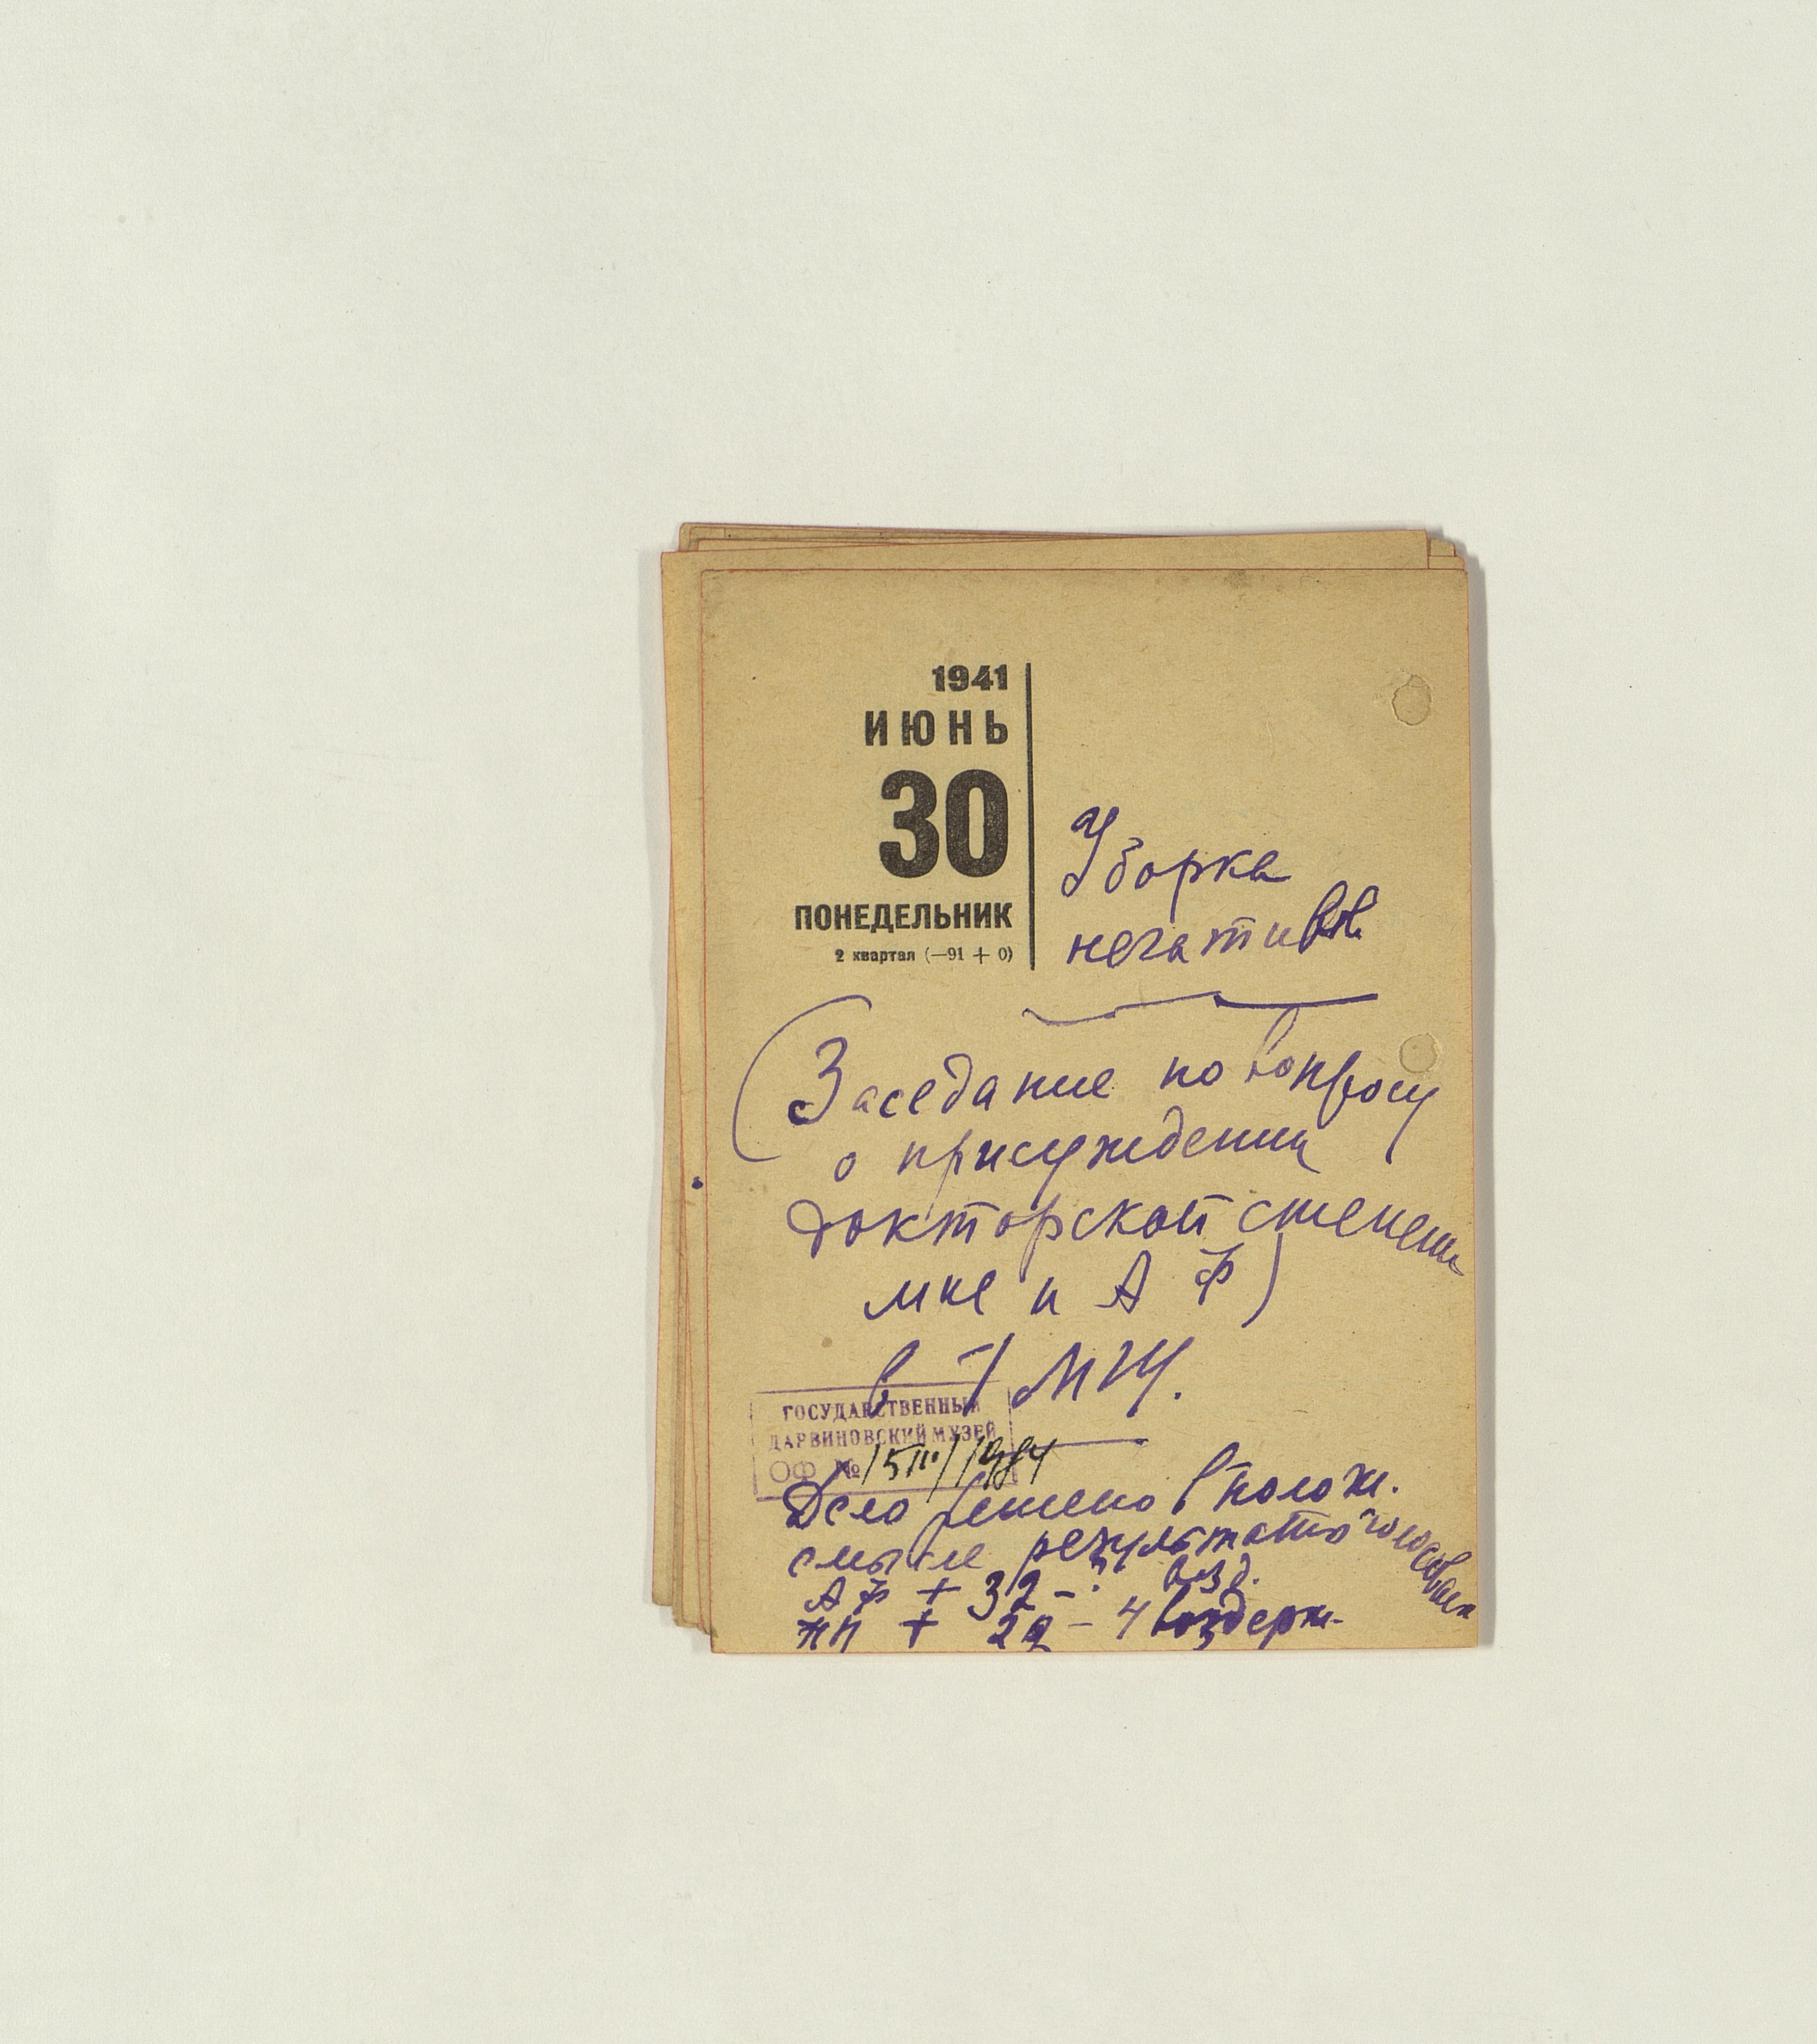 1941
ИЮНЬ
30
ПОНЕДЕЛЬНИК
2 квартал (—91 + 0)
Уборка
негативов
(Заседание по вопросу
о присуждении
докторской степени
мне и А Ф)
в 1 МГУ.
ГОСУДАРСТВЕННЫЙ
ДАРВИНОВСКИЙ МУЗЕЙ
ОФ №
Дело решено в полож.
смысле результаты голосован
АФ + 32 – ? возд.
НН + 29 – 4 воздерж.